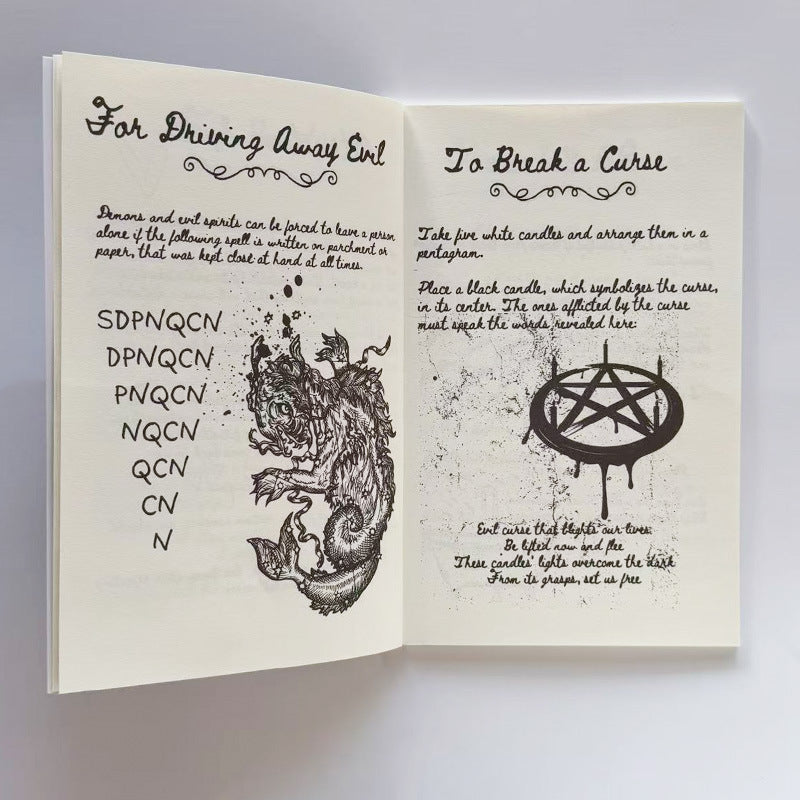 For Driving Away Evil
Demons and evil spirits can be forced to leave a person
alone if the following spell is written on parchment or
paper, that was kept close at hand at all times.
SDPNQCN
DPNQCN
PNQCN
NQCN
QCN
CN
N
To Break a Curse
Take five white candles and arrange them in a
pentagram.
Place a black candle, which symbolizes the curse,
in its center. The ones afflicted by the curse
must speak the words revealed here:
Evil curse that blights our lives.
Be lifted now and flee
These candles' lights overcome the dark
From its grasps, set us free